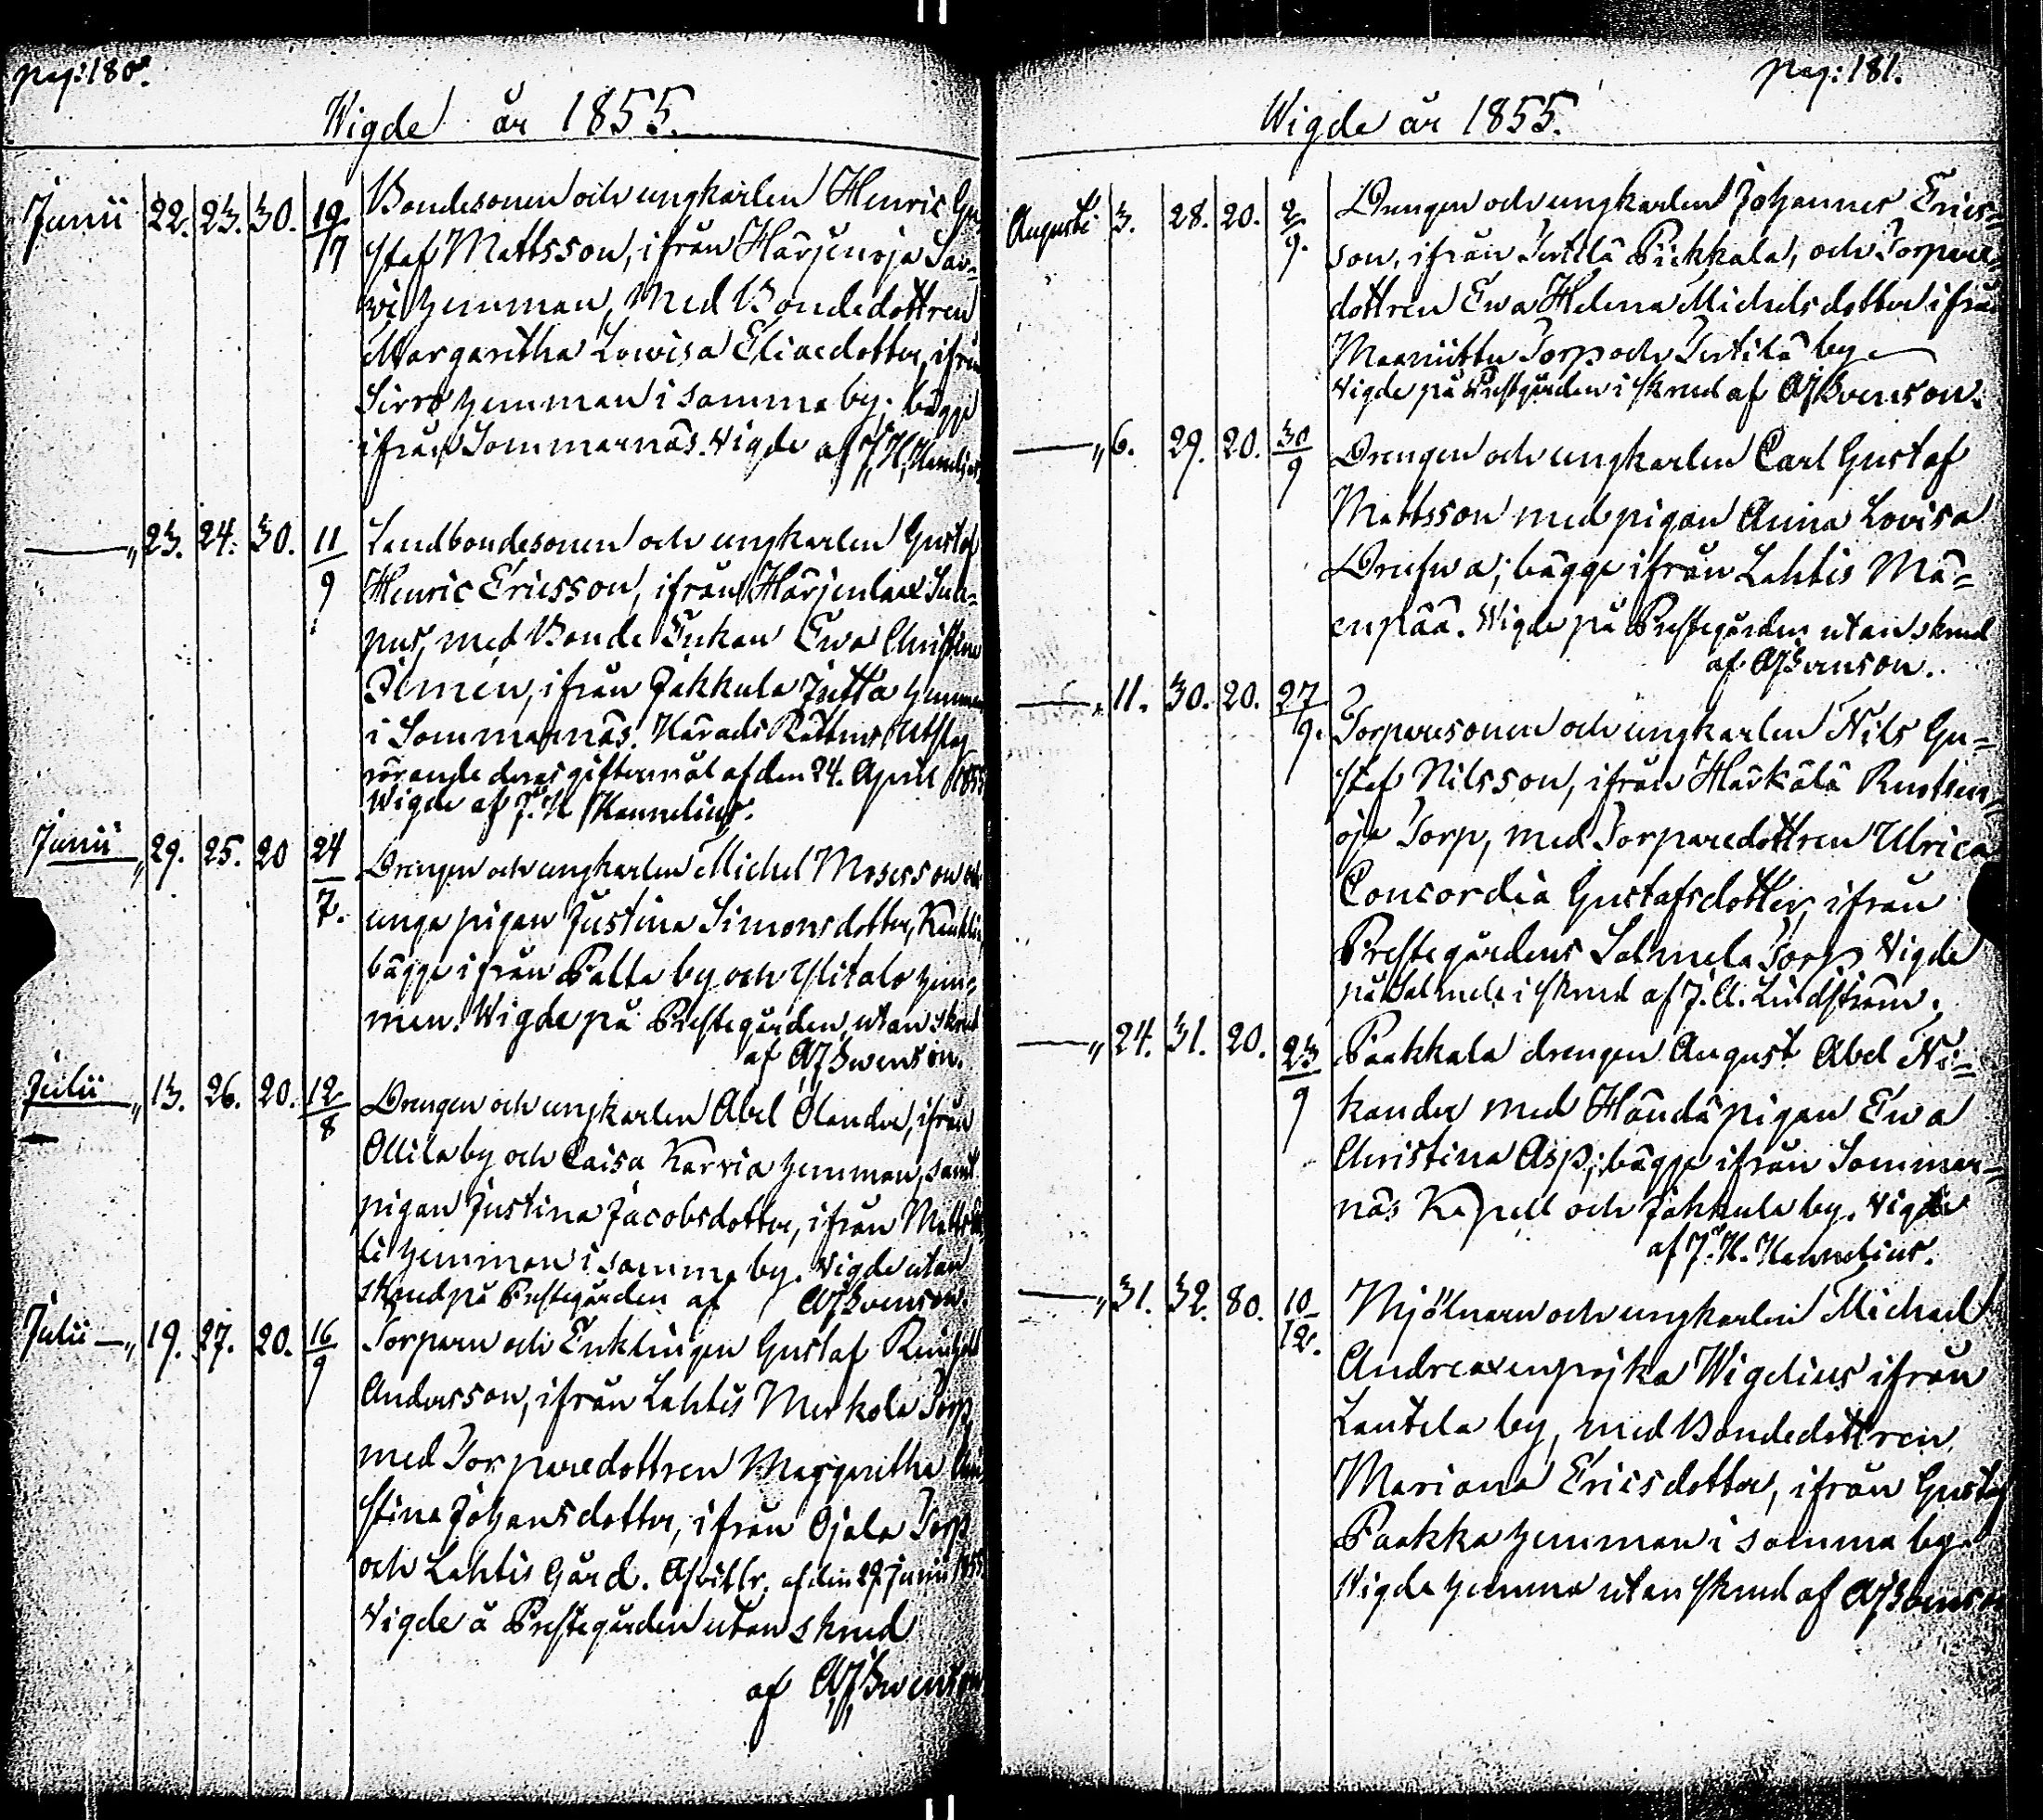 pag: 180.
Wigde år 1855.
Junii 22. 23. 30. 19/7 Bondesonen och ungkarlen Henric Gu
staf Mattsson, ifrån Härjenoja Sar=
vi hemman, Med Bondedottren
Margaretha Lowisa Eliaedotter, ifrån
Sirro hemman i samma by; bägge
ifrån Sommarnäs. Vigde af J. H. Hannelius
— „ 23. 24. 30. 11/9 Landbondesonen och ungkarlen Gustaf
Henric Ericsson, ifrån Härjenlax
med Bonde Enkan Ewa Christina
ifrån Jakkula Jutta hemman
i Sommarnäs. Härads Rättens Utslag
rörande deras giftermål af den 24. April 1855
Wigde af J. H. Hannelius.
Junii — „ 29. 25. 20 24/7. Drengen och ungkarlen Michel Mosesson och
unga pigan Justina Simonsdotter,
bägge ifrån Palta by och Ylitalo hem=
man. Wigde på Prestegården, utan skrud
af AJSwenson.
Julii — „ 13. 26. 20. 12/8 Drengen och ungkarlen Abel Olander, ifrån
Ollila by och Caisa Karvia hemman, samt
pigan Justina Jacobsdotter, ifrån
hemman i samma by. Vigde utan
skrud på Prestegården af AJSvenson.
Julii — „ 19. 27. 20. 16/9 Torparen och Enklingen Gustaf
Andersson, ifrån Lahtis Merkola Torp,
med Torparedottren Margaretha Chri
stina Johansdotter, ifrån Ojala Torp
och Lahtis Gård. af den 29. Junii 1855
Vigde å Prestegården utan skrud
af AJSwenson
pag: 181.
Wigde år 1855.
Augusti 3. 28. 20. 2/9. Drengen och ungkarlen Johannes Erics=
son, ifrån Tertilä Pickkala, och Torpare
dottren Ewa Helena Michelsdotter ifrån
Maaniittu Torp och Tertilä by
Vigde på Prestgården i skrud af AJSvenson.
— „ 6. 29. 20. 30/9 Drengen och ungkarlen Carl Gustaf
Mattsson med pigan Anna Lovisa
bägge ifrån Lahtis Mä=
enpää. Wigde på Prestegården utan skrud
af AJSvenson.
— „ 11. 30. 20. 27/9. Torparesonen och ungkarlen Nils Gu=
staf Nilsson, ifrån Härkälä Ruotsin=
oja Torp, med Torparedottren Ulrica
Concordia Gustafsdotter, ifrån
Prestegårdens Salmela Torp Vigde
på Salmela i skrud af J. A. Lindström.
— „ 24. 31. 20. 23/9 Paakkala drengen August Abel Ni=
kander med Händä pigan Ewa
Christina Asp; bägge ifrån Sommar=
näs Kapell och Jakkula by. Vigde
af J. H. Hannelius.
— „ 31. 32. 80. 10/12. Mjölnaren och ungkarlen Michael
Andreaxenpojka Wigelius ifrån
Lautela by, med Bondedottren
Mariana Ericsdotter, ifrån Gustaf
Paakka hemman i samma by.
Vigde hemma utan skrud af AJSvenson